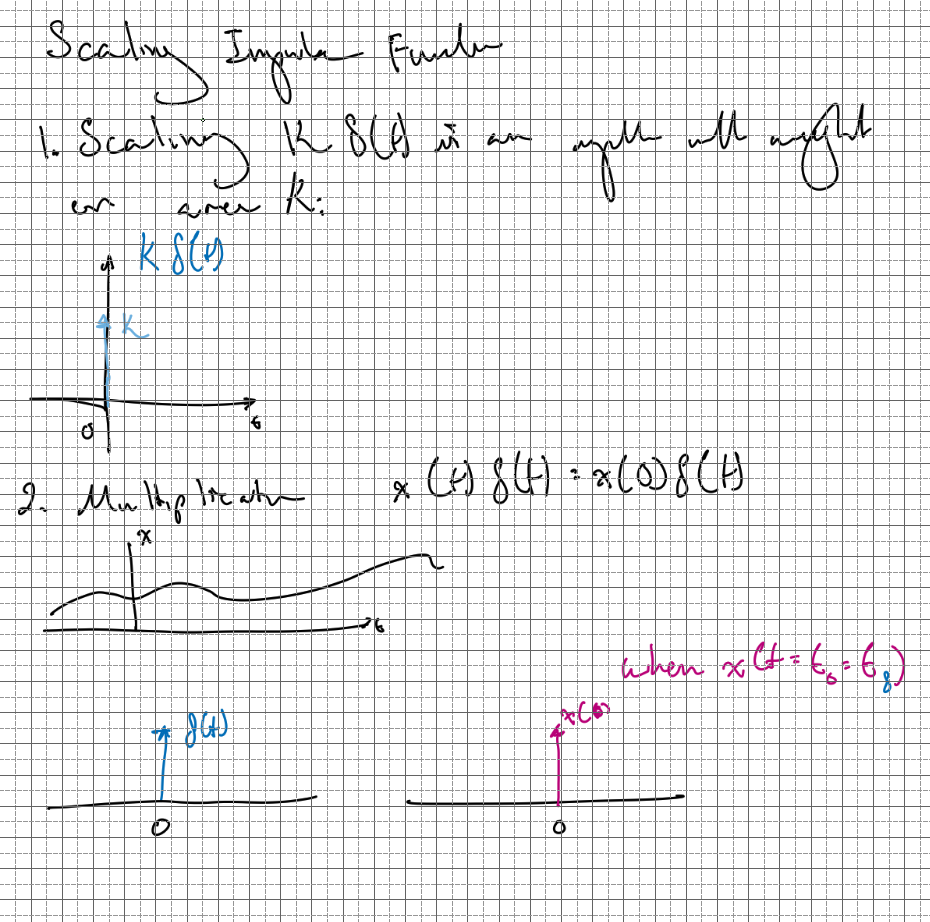 Scaling Impulse Function
1. Scaling K δ(t) is an impulse with weight
or area K.
K δ(t)
K
0
t
2. Multiplication x(t) δ(t) = x(0) δ(t)
x
t
when x(t = t₀ = t_δ)
δ(t)
x(0)
0
0